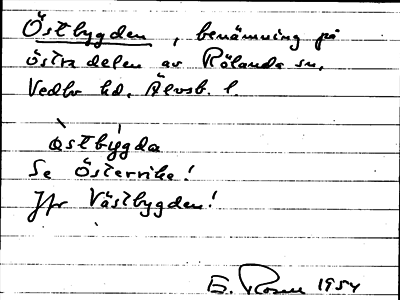 Östbygden, benämning på
östra delen av Rölanda sn,
Vedbo hd. Älvsb. l.
òstbýgda
Se Österrike!
Jfr Västbygden!
E. Rosen 1954